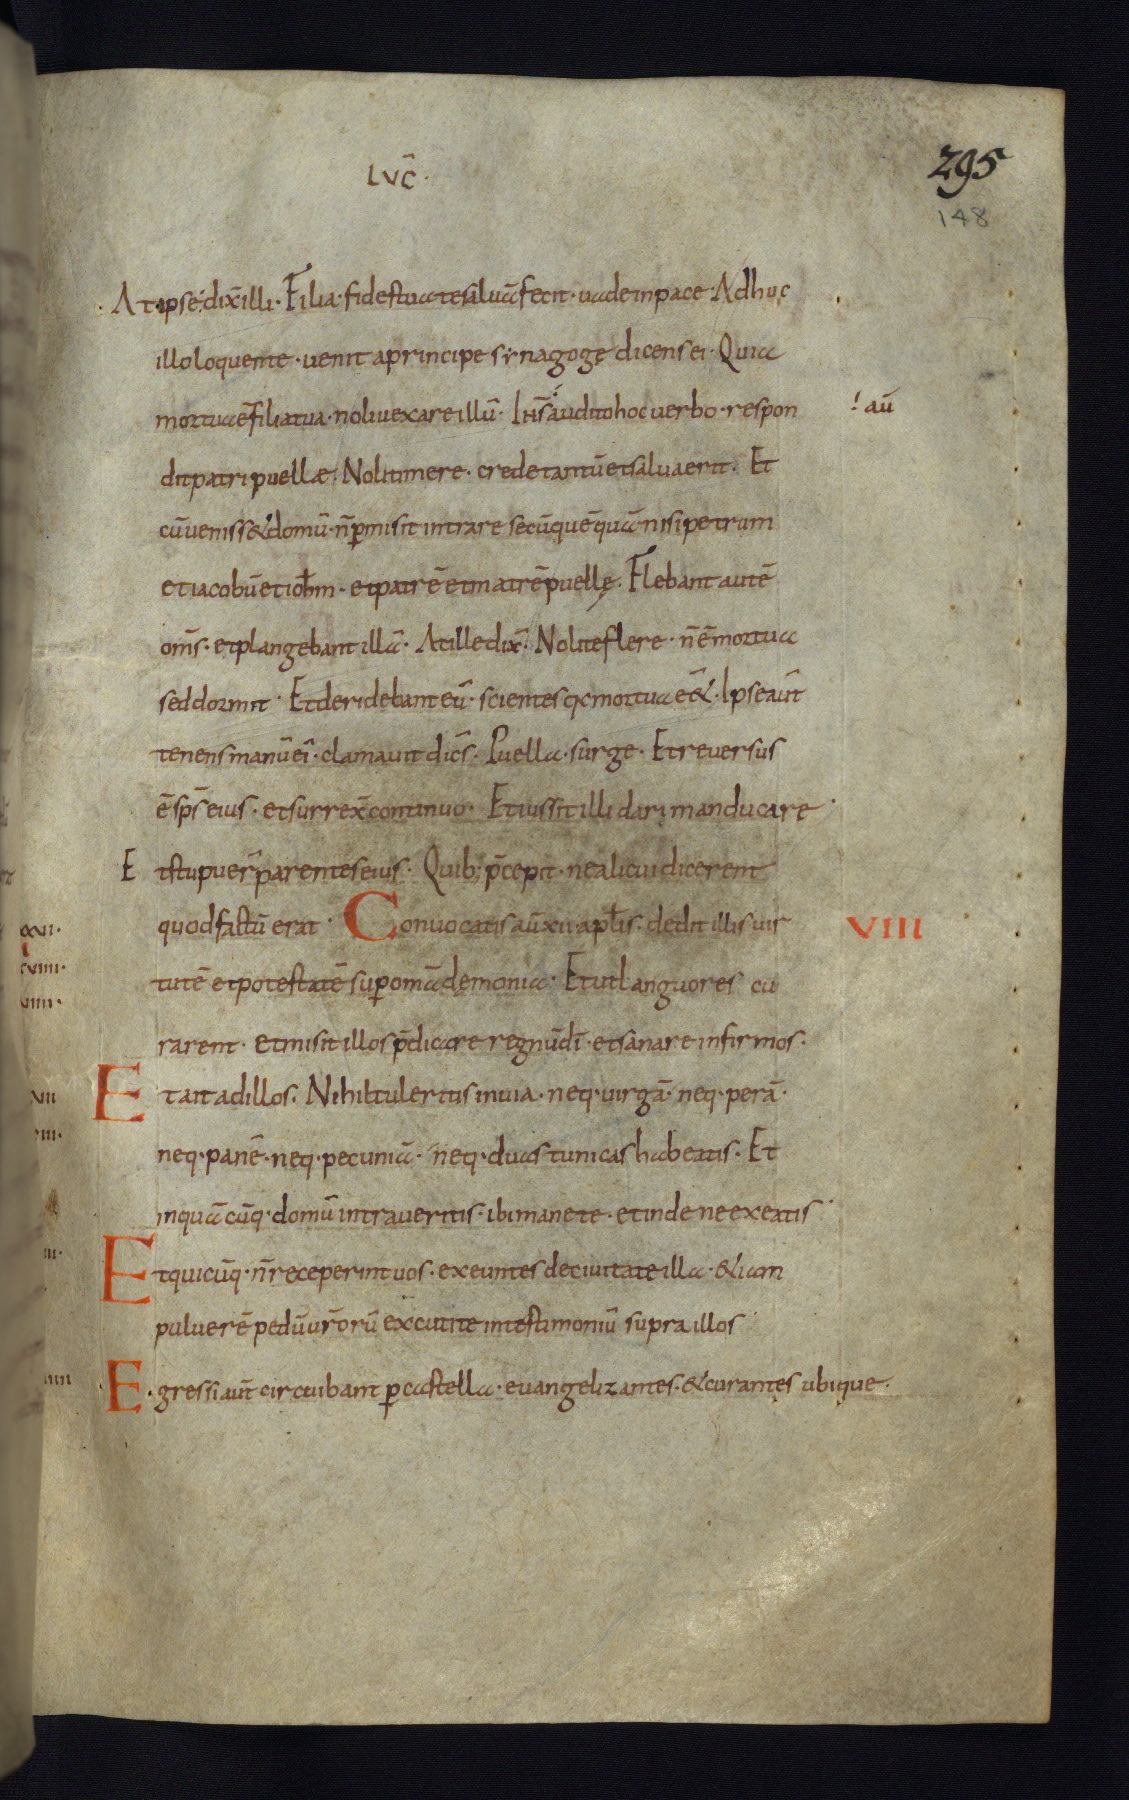 LUC̄·
295
148
· At ipse dix̄ illi · Filia · fides tua te saluā fecit · uade in pace · Adhuc
illo loquente · uenit a principe synagogę dicens ei · Quia
mortua ē filia tua · noli uexare illū · Ih̄s audito hoc uerbo · respon
! aū
dit patri puellæ · Noli timere · crede tantū et salua erit · Et
cū ueniss& domū · n̄ ꝑmisit intrare secū quēquā nisi petrum
et iacobū et ioh̄m · et patrē et matrē puellę · Flebant autē
om̄s · et plangebant illā · At ille dix̄ · Nolite flere · n̄ ē mortua
sed dormit · Et deridebant eū · scientes qc mortua eēt · Ipse aūt
tenens manū ei · clamauit dic̄s · Puella · surge · Et reuersus
ē sp̄s eius · et surrex̄ continuo · Et iussit illi dari manducare
Et stupuer̄ parentes eius · Quib; p̄cepit · ne alicui dicerent
quod factū erat · Conuocatis aū xii · apl̄is · dedit illis uir
VIII
tutē et potestatē suꝑ om̄a dęmonia · Et ut languores cu
rarent · et misit illos p̄dicare regnū dī · et sanare infirmos ·
Et ait ad illos · Nihil tuleritis in uia · neq· uirgā · neq· perā ·
neq· panē · neq· pecuniā · neq· duas tunicas habeatis · Et
in quācūq· domū intraueritis · ibi manete · et inde ne exeatis
Et quicūq· n̄ receperint uos · exeuntes de ciuitate illa · &iam
puluerē pedū ur̄orū excutite in testimoniū supra illos
Egressi aūt circuibant ꝑ castella · euangelizantes · & curantes ubique ·